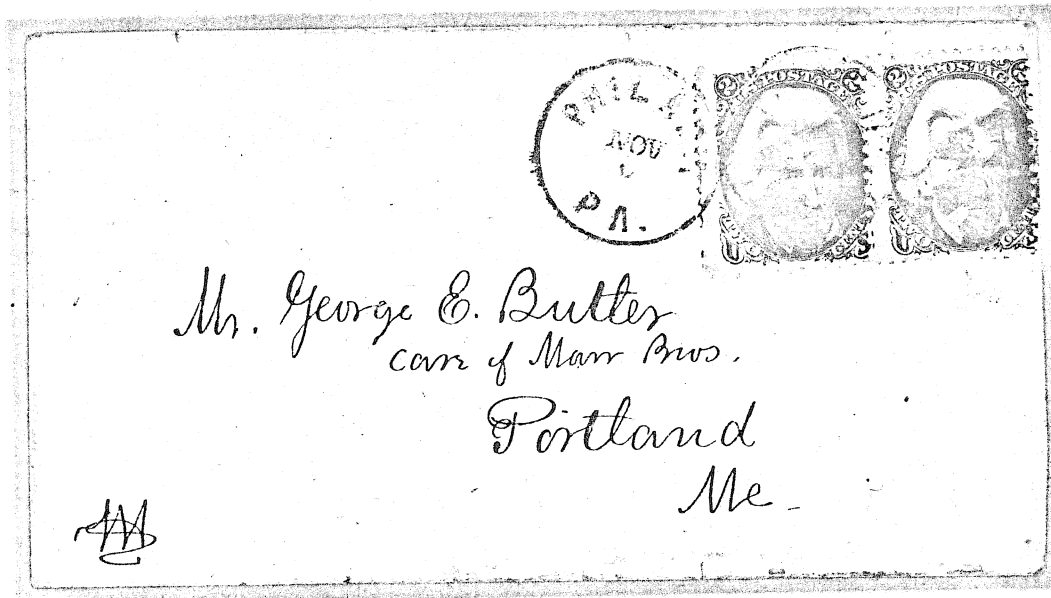 PHILA.
NOV
PA.
2 U.S. POSTAGE 2
U S
2 U.S. POSTAGE 2
U S
Mr. George E. Butler
care of Marr Bros.
Portland
Me